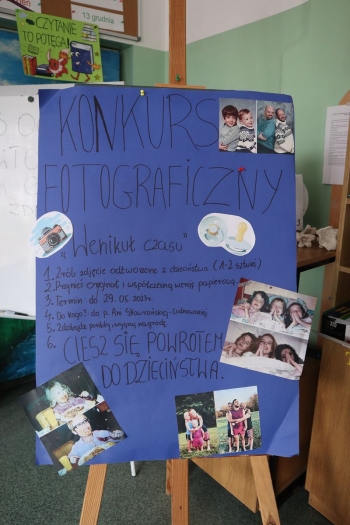 13 grudnia
CZYTANIE
TO POTĘGA!
KONKURS
FOTOGRAFICZNY
"Wehikuł czasu"
1. Zrób zdjęcie odtworzone z dzieciństwa (1-2 sztuki)
2. Przynieś oryginał i współczesną wersję papierową.
3. Termin: do 29.05.2023r.
4. Do kogo?: do p. Ani
5. Zdobądź punkty i wygraj nagrodę.
6. CIESZ SIĘ POWROTEM
DO DZIECIŃSTWA.